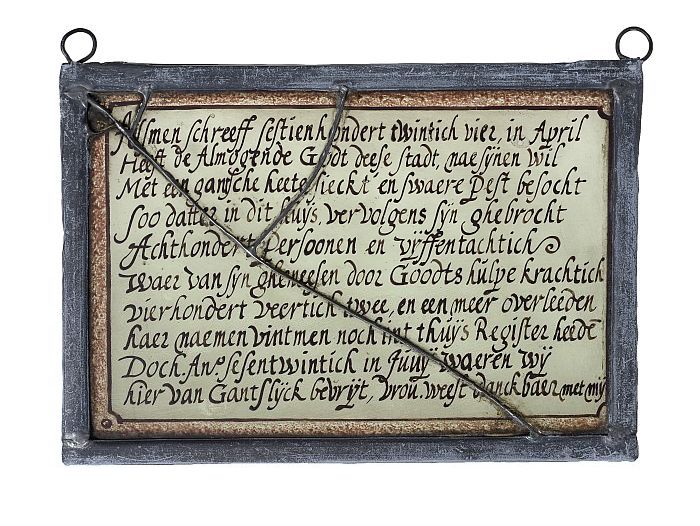 Alsmen schreeff sestienhondert twintich vier, in April
Heeft de Almogende Godt deese stadt, nae sÿnen wil
Met een gansche heete sieckt en swaere Pest besocht
soo datter in dit huÿs, vervolgens sÿn ghebrocht
Achthondert Persoonen en vÿffentachtich
waer van sÿn gheneesen door Goodts hulpe krachtich
vierhondert veertich twee, en een meer overleeden
haer naemen vintmen noch int thuÿs Register heedē
Doch An.º sesentwintich in Juny waeren wÿ
hier van Gantslÿck bevrÿt, vrou. weest danckbaer met mÿ